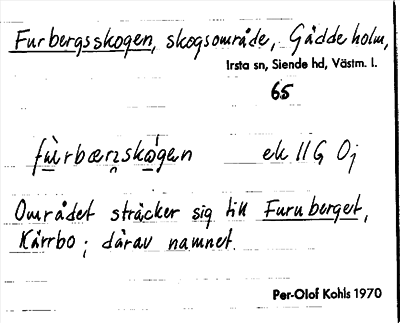 Furbergsskogen, skogsområde, Gäddeholm,
Irsta sn, Siende hd, Västm. l.
65
fùrbærn̥skó̤gen ek II G Oj
Området sträcker sig till Furuberget,
Kärrbo; därav namnet.
Per-Olof Kohls 1970